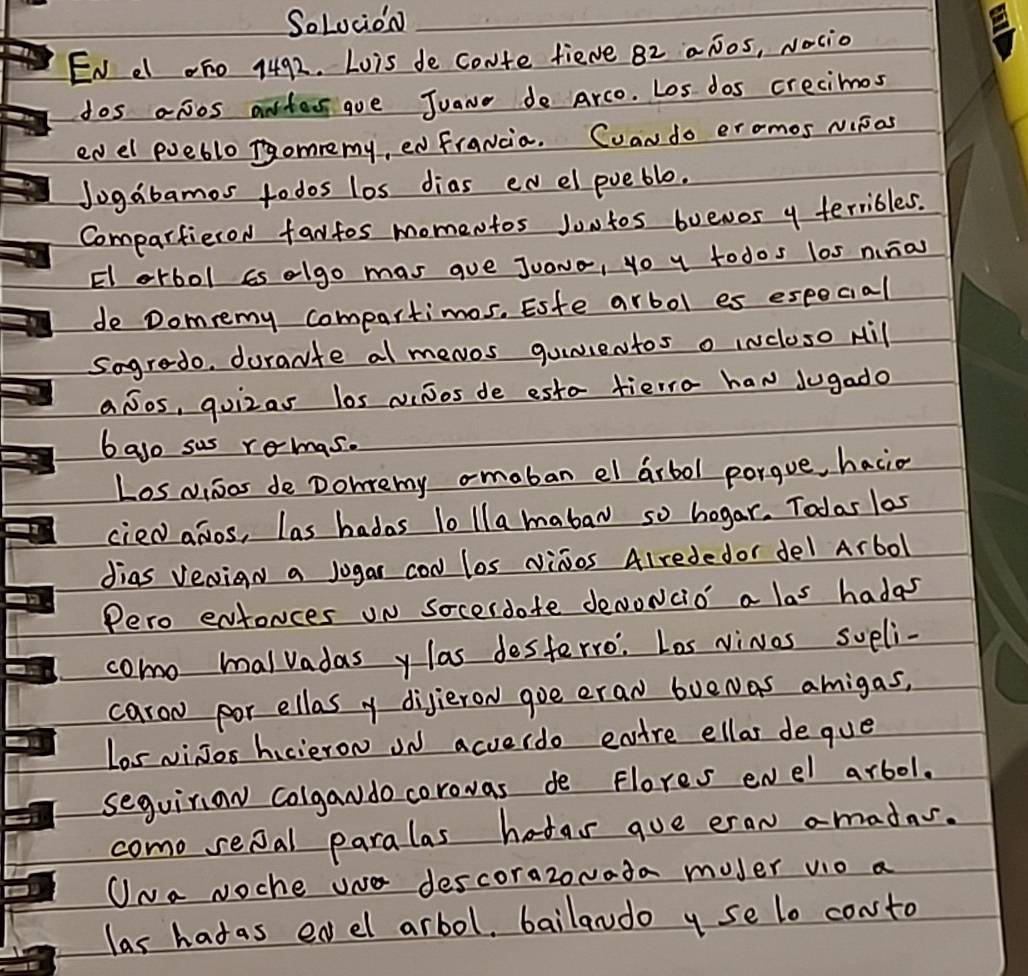 Solución
EN el año 1492. Luis de conte tiene 82 años, Nacio
dos años antes que Juana de Arco. Los dos crecimos
en el pueblo Domremy, en Francia. Cuando eramos niñas
Jugábamos todos los dias en el pueblo.
Compartieron tantos momentos Juntos buenos y terribles.
El arbol es algo mas que Juana, yo y todos los niñas
de Domremy compartimos. Este arbol es especial
sagrado. durante al menos quinientos o incluso Mil
años, quizas los niños de esta tierra han Jugado
bajo sus ramas.
Los niños de Domremy amaban el árbol porque, hacia
cien años, las hadas lo llamaban su hogar. Todas los
dias venian a Jugar con los niños Alrededor del Arbol
Pero entonces un sacerdote denunció a las hadas
como malvadas y las desterró. Los niños supli-
caron por ellas y dijieron que eran buenas amigas,
Los niños hicieron un acuerdo entre ellas de que
seguirian colgando coronas de Flores en el arbol.
como señal paralas hadas que eran amadas.
Una noche una descorazonada mujer vio a
las hadas en el arbol. bailando y se lo conto